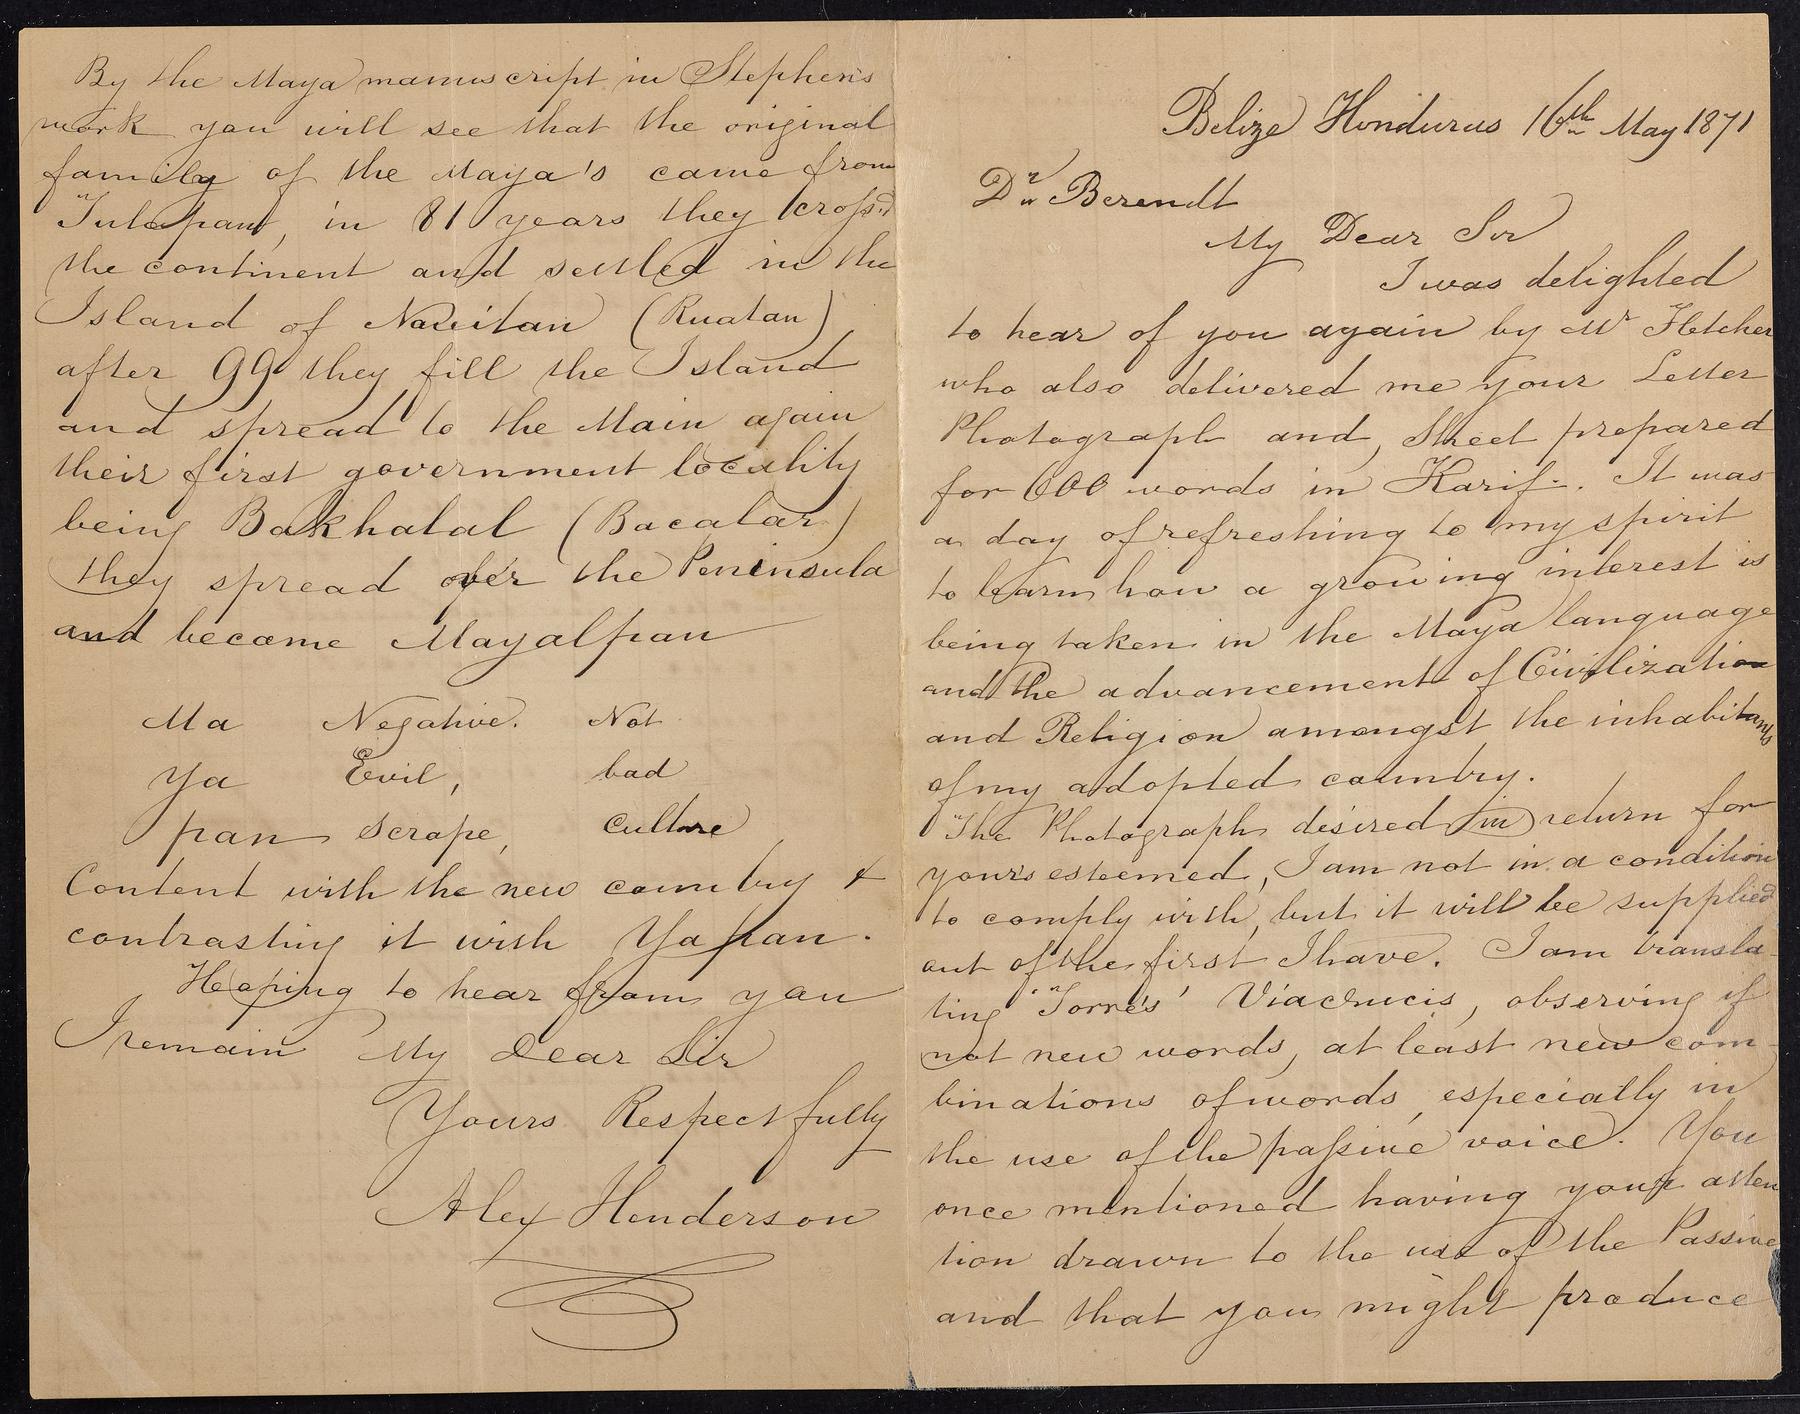 Belize Honduras 16th May 1871
Dr Berendt
My Dear Sir
I was delighted
to hear of you again by Mr Fletcher
who also delivered me your Letter
Photograph and, Sheet prepared
for 600 words in Karif. It was
a day of refreshing to my spirit
to learn how a growing interest is
being taken in the Maya language
and the advancement of Civilization
and Religion amongst the inhabitants
of my adopted country.
The Photograph desired in return for
yours esteemed, I am not in a condition
to comply with, but it will be supplied
out of the first I have. I am transla-
ting "Torre's' Viacrucis, observing if
not new words, at least new com-
binations of words, especially in
the use of the passive voice. You
once mentioned having your atten
tion drawn to the use of the Passive
and that you might produce
By the Maya manuscript in Stephen's
work you will see that the original
family of the Maya's came from
"Tulapan, in 81 years they cross'd
the continent and settled in the
Island of Navitan (Ruatan)
after 99 they fill the Island
and spread to the Main again
their first government locality
being Bakhalal (Bacalar)
they spread over the Peninsula
and became Mayalpan
Ma Negative. Not
Ya Evil, bad
pan Scrape, culture
Content with the new country &
contrasting it with Yapan.
Hoping to hear from you
I remain My Dear Sir
Yours Respectfully
Alex Henderson